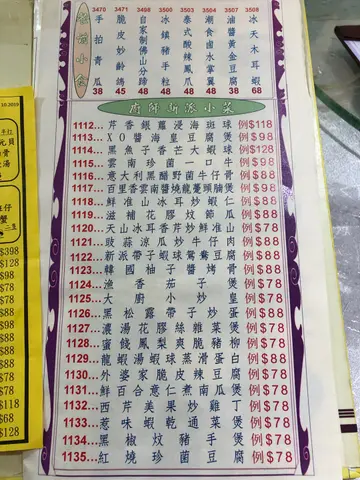 3470 3471 3498 3472 3505 3503 3507 3508
手拍青瓜
脆皮妙齡鴿
自家制佛山分蹄
冰鎮豬手粒
泰式酸辣鳳爪
潮式鹵水掌翼
油鹽黃金豆腐
冰天木耳蝦
38 45 45 45 48 48 38 68
1112...芹香銀蘿浸海斑球 例$118
1113...XO醬海皇豆腐煲 例$98
1114...黑魚子香芒大蝦球 例$128
1115...雲南珍菌一口牛 例$98
1116...意大利黑醋野菌牛仔骨 例$88
1117...百里香雲南醬燒龍躉腩煲 例$98
1118...鮮准山冰耳炒蝦仁 例$88
1119...滋補花膠炆節瓜 例$88
1120...天山冰耳香芹炒鮮准山 例$78
1121...豉蒜涼瓜炒牛仔肉 例$88
1122...新派帶子蝦球鴛鴦豆腐 例$88
1123...韓國柚子醬烤骨 例$88
1124...漁香茄子煲 例$78
1125...大廚小炒皇 例$78
1126...黑松露帶子炒蛋 例$88
1127...濃湯花膠絲雜菜煲 例$78
1128...蜜餞鳳梨爽脆豬柳 例$78
1129...龍蝦湯蝦球蒸滑蛋白 例$88
1130...外婆家脆皮辣豆腐 例$78
1131...鮮百合意仁煮南瓜煲 例$78
1132...西芹美果炒雞丁 例$78
1133...惹味蝦乾通菜煲 例$78
1134...黑椒炆豬手煲 例$78
1135...紅燒珍菌豆腐 例$78
$398
$128
$68
$88
$88
$88
$78
$78
$118
$68
$128